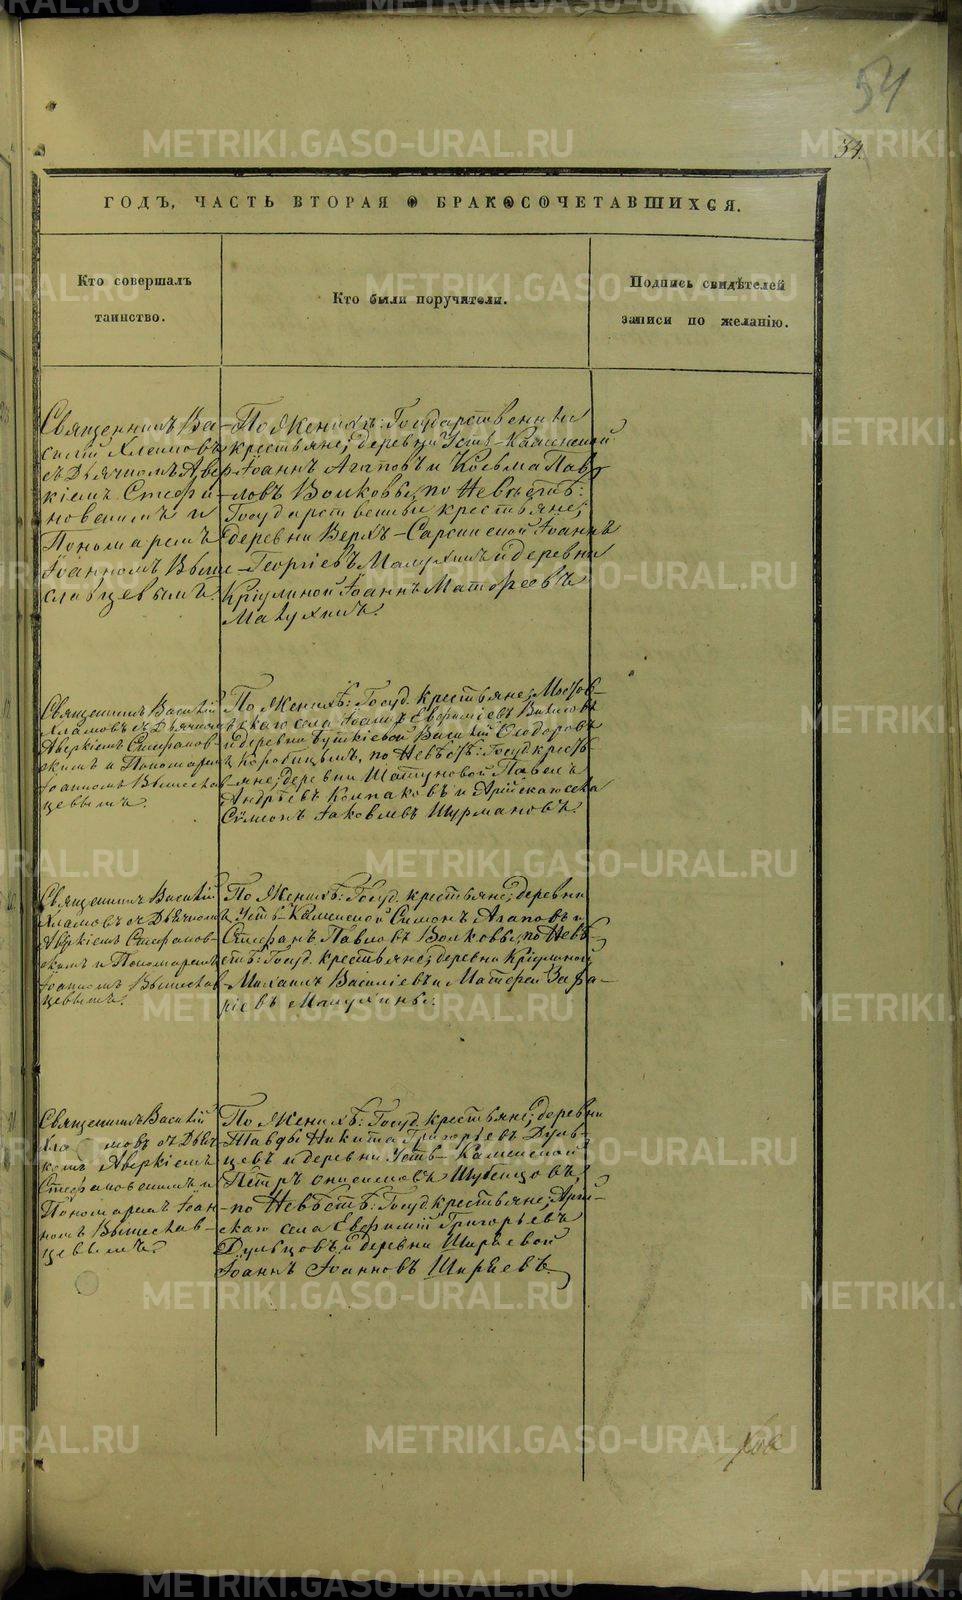 54
34.
ГОДЪ, ЧАСТЬ ВТОРАЯ О БРАКОСОЧЕТАВШИХСЯ.
Кто совершалъ
таинство.
Кто были поручители.
Подпись свидѣтелей
записи по желанію.
Священникъ Ва-
силій Хламовъ
съ Дьячкомъ Авер-
кіемъ Стефа-
новскимъ и
Пономаремъ
Іоанномъ Выше-
славцевымъ.
По Женихѣ: Государственные
крестьяне; деревни Усть-Каменской
Іоаннъ Агаповъ и Козьма Пав-
ловъ Волковы, по Невѣстѣ:
Государственные крестьяне;
деревни Верхъ-Сарсинской Іоаннъ
Георгіевъ Мамухинъ и деревни
Крюлиной Іоаннъ Матѳеевъ
Священникъ Василій
Хламовъ съ Дьячкомъ
Аверкіемъ Стефанов-
скимъ и Пономаремъ
Іоанномъ Вышеслав-
цевымъ.
По Женихѣ: Госуд. крестьяне;
скаго села Іоаннъ Евфиміевъ
и деревни Василій Ѳеодоровъ
по Невѣстѣ: Госуд. кресть-
яне; деревни Шатуновой Павелъ
Андреевъ Колпаковъ и Арійскаго села
Сѵмеонъ Іаковлевъ Шурмановъ.
Священникъ Василій
Хламовъ съ Дьячкомъ
Аверкіемъ Стефанов-
скимъ и Пономаремъ
Іоанномъ Вышеслав-
цевымъ.
По Женихѣ: Госуд. крестьяне; деревни
Усть-Каменской Симонъ Агаповъ и
Стефанъ Павловъ Волковы, по Невѣ-
стѣ: Госуд. крестьяне; деревни Крюлиной
Михаилъ Василіевъ и Матѳей Заха-
ріевъ
Священникъ Василій
Хламовъ съ Дьяч-
комъ Аверкіемъ
Стефановскимъ и
Пономаремъ Іоан-
номъ Вышеслав-
цевымъ.
По Женихѣ: Госуд. крестьяне; деревни
Тавды Никита Григорьевъ Дуль-
цевъ и деревни Усть-Каменской
Петръ Онисимовъ Шубенцовъ,
по Невѣстѣ: Госуд. крестьяне; Арій-
скаго села Евфимій Григорьевъ
Дульцовъ и деревни Ширяевой
Іоаннъ Іоанновъ Ширяевъ.
METRIKI.GASO-URAL.RU